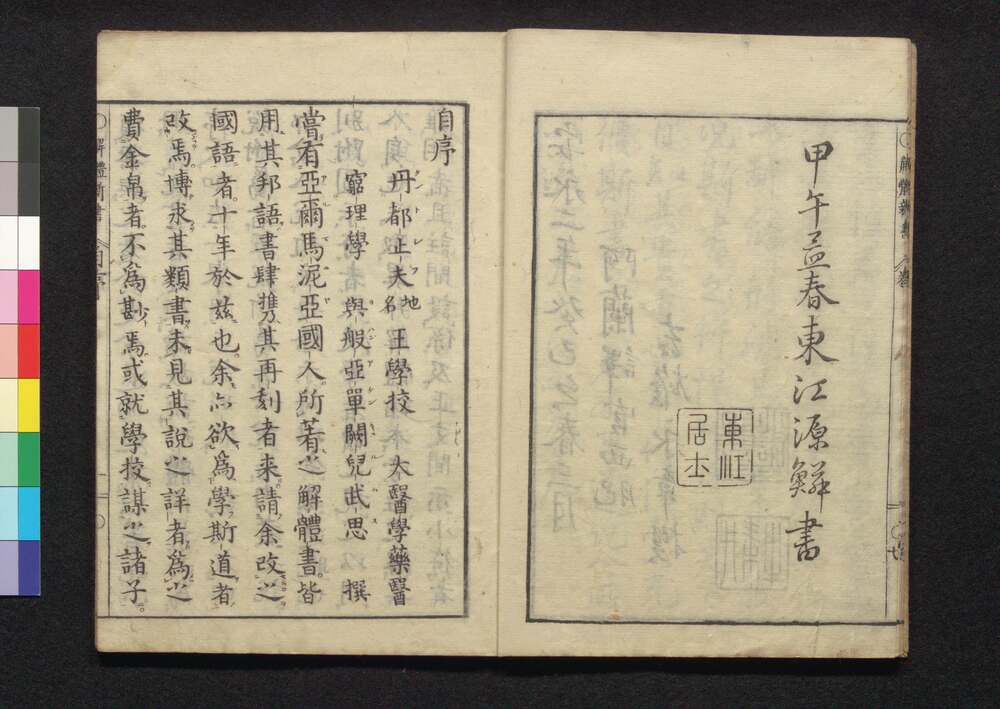 甲午孟春東江源鱗書
東江
居士
自序
丹都正夫郤地王學校 大醫學藥醫
窮理學 與般亞單闕兒武思 撰
嘗有亞爾馬泥亞國人所著之解體書皆
用其邦語書肆携其再刻者来請余改之
國語者十年於茲也余亦欲為學斯道者
改焉博求其類書未見其說之詳者為之
費金帛者不為尠焉或就學校謀之諸子
解體新書
自序